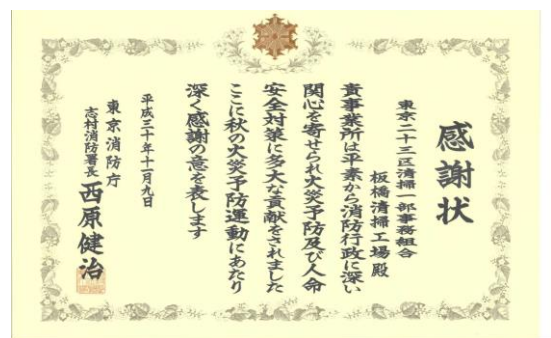 感謝状
東京二十三区清掃一部事務組合
板橋清掃工場殿
貴事業所は平素から消防行政に深い
関心を寄せられ火災予防及び人命
安全対策に多大な貢献をされました
ここに秋の火災予防運動にあたり
深く感謝の意を表します
平成三十年十一月九日
東京消防庁
志村消防署長 西原健治